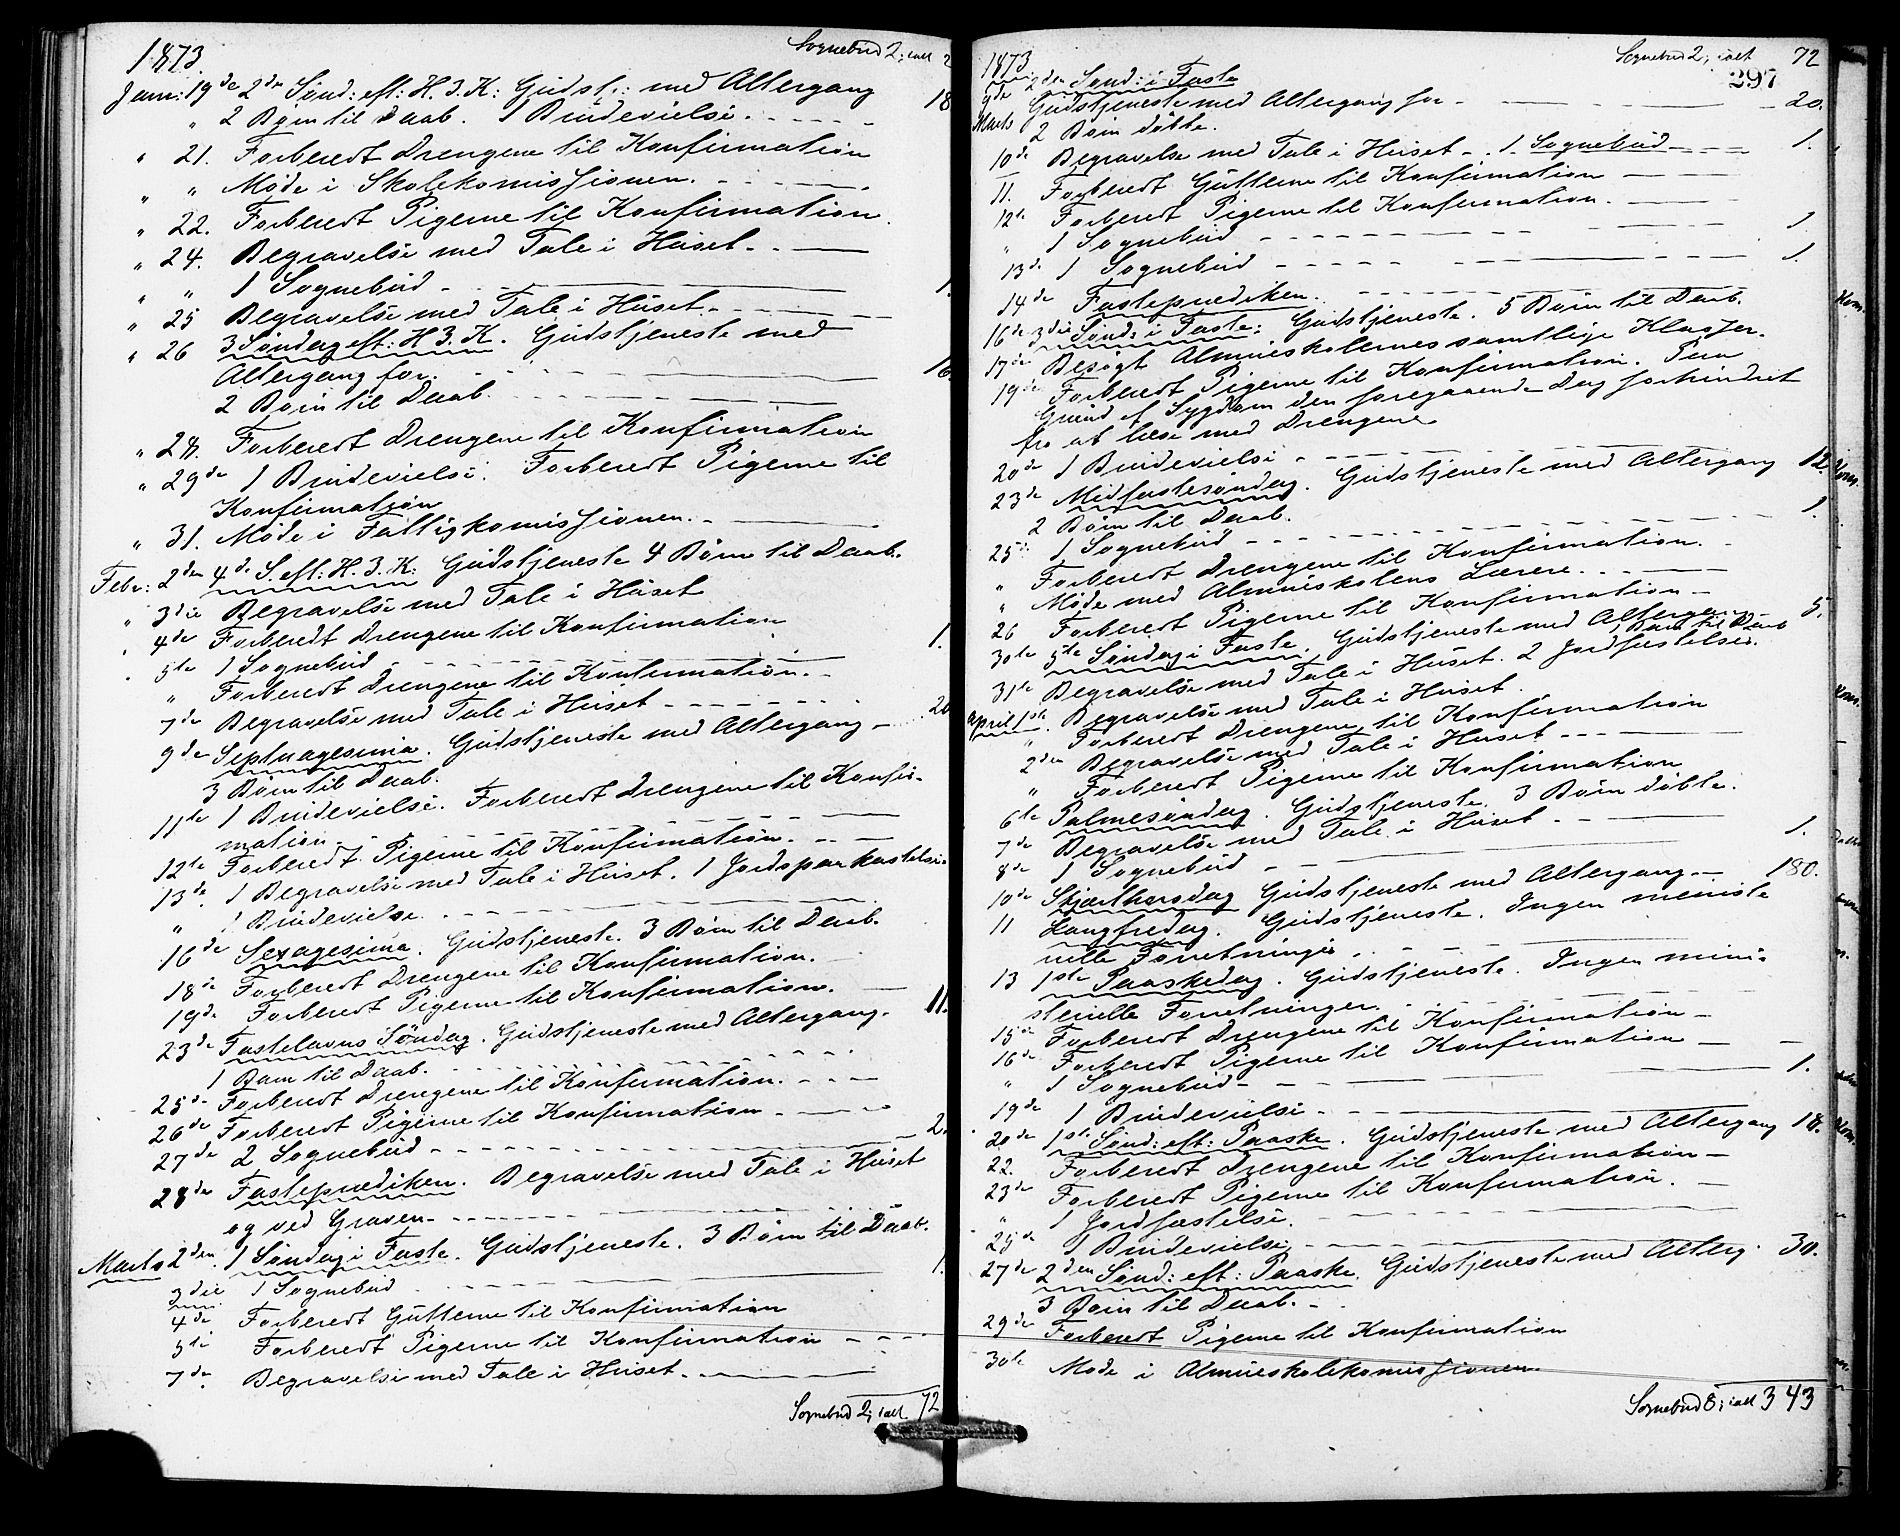 1873.
Sognebud 2, ialt 2
Janu: 19de 2den Sönd: eft: H. 3. K: Gudstj: med Altergang 18
" 2 Börn til Daab. 1 Brudevielse.
" 21. Forberedt Drengene til Konfirmation
" " Möde i Skolekomissionen.
" 22. Forberedt Pigerne til Konfirmation.
" 24. Begravelse med Tale i Huset.
" " 1 Sognebud 1.
" 25 Begravelse med Tale i Huset.
" 26 3 Söndag eft: H 3. K. Gudstjeneste med
Altergang for. 16.
2 Börn til Daab.
" 28. Forberedt Drengene til Konfirmation
" 29de 1 Brudevielse. Forberedt Pigerne til
Konfirmation
" 31. Möde i Fattigkomissionen.
Febr: 2den 4de S. eft: H. 3. K: Gudstjeneste 4 Börn til Daab.
" 3die Begravelse med Tale i Huset
" 4de Forberedt Drengene til Konfirmation
" 5te 1 Sognebud 1.
" Forberedt Drengene til Konfirmation.
7de Begravelse med Tale i Huset
9de Septuagesima. Gudstjeneste med Altergang 20
3 Börn til Daab.
11te 1 Brudevielse. Forberedt Drengene til Konfir-
mation
12te Forberedt Pigerne til Konfirmation.
13de 1 Begravelse med Tale i Huset. 1 Jordspaakastelse
" 1 Brudevielse.
16de Sexagesima. Gudstjeneste. 3 Börn til Daab.
18de Forberedt Drengene til Konfirmation.
19de Forberedt Pigerne til Konfirmation.
23de Fastelavns Söndag. Gudstjeneste med Altergang. 11.
1 Barn til Daab.
25de Forberedt Drengene til Konfirmation.
26de Forberedt Pigerne til Konfirmation
27de 2 Sognebud 2.
28de Fasteprædiken. Begravelse med Tale i Huset
og ved Graven.
Marts 2den. 1 Söndag i Faste. Gudstjeneste. 3 Börn til Daab.
3die 1 Sognebud 1.
4de Forberedt Gutterne til Konfirmation
5te Forberedt Pigerne til Konfirmation
7de Begravelse med Tale i Huset.
Sognebud 2; ialt 72
1873
Sognebud 2; ialt 72
297
9de 2den Sönd: i Faste
Marts Gudstjeneste med Altergang for 20.
2 Börn döbte.
10de Begravelse med Tale i Huset. 1 Sognebud 1.
11. Forberedt Gutterne til Konfirmation
12te Forberedt Pigerne til Konfirmation.
" 1 Sognebud 1
13de 1 Sognebud 1.
14de Fasteprædiken.
16de 3die Sönd: i Faste: Gudstjeneste. 5 Börn til Daab.
17de Besögt Almueskolernes samtlige Klasser.
19de Forberedt Pigerne til Konfirmation. Paa
Grund af Sygdom den foregaaende Dag forhindret
fra at læse med Drengene
20de 1 Brudevielse
23de Midfastesöndag. Gudstjeneste med Altergang 12.
2 Börn til Daab.
25de 1 Sognebud 1.
" Forberedt Drengene til Konfirmation.
" Möde med Almueskolens Lærere.
26 Forberedt Pigerne til Konfirmation
30te 5te Söndag i Faste. Gudstjeneste med Altergang 5.
1 Barn til Daab
31te Begravelse med Tale i Huset. 2 Jordfæstelser.
April 1ste. Begravelse med Tale i Huset.
" Forberedt Drengene til Konfirmation
2den Begravelse med Tale i Huset
" Forberedt Pigerne til Konfirmation
6te Palmesöndag. Gudstjeneste. 3 Börn döbte.
7de Begravelse med Tale i Huset
8de 1 Sognebud 1.
10de Skjærthorsdag Gudstjeneste med Altergang 180.
11 Langfredag. Gudstjeneste. Ingen meniste
rielle Forretninger.
13 1ste Paaskedag. Gudstjeneste. Ingen mini-
sterielle Forretninger.
15de Forberedt Drengene til Konfirmation
16de Forberedt Pigerne til Konfirmation
" 1 Sognebud 1.
19de 1 Brudevielse
20de 1ste Sönd: eft: Paaske. Gudstjeneste med Altergang 18.
22. Forberedt Drengene til Konfirmation
23de Forberedt Pigerne til Konfirmation.
" 1 Jordfæstelse.
25de 1 Brudevielse
27de 2den Sönd: eft: Paaske. Gudstjeneste med Alterg. 30.
3 Börn til Daab.
29de Forberedt Pigerne til Konfirmation
30te Möde i Almueskolekomissionen
Sognebud 8; ialt 343